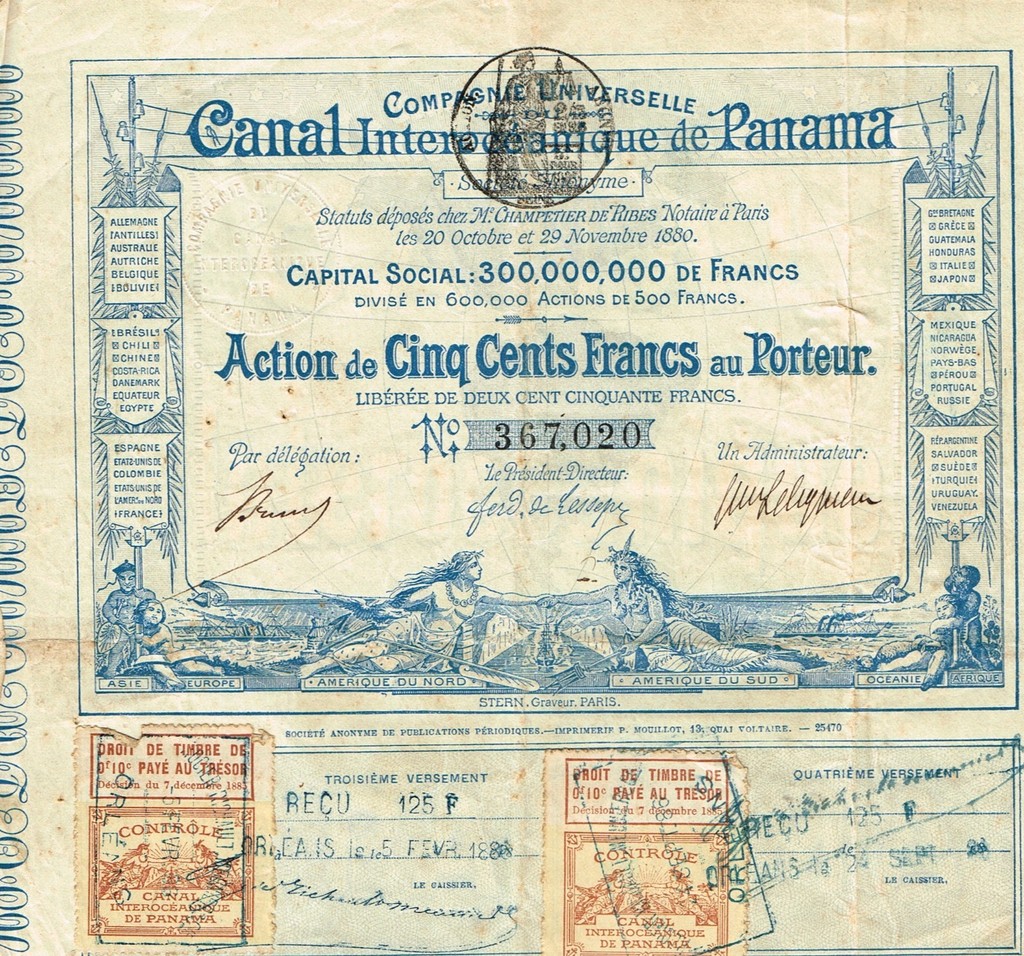 COMPAGNIE UNIVERSELLE
Canal Interocéanique de Panama
Société Anonyme
SEINE
Statuts déposés chez Mᵉ CHAMPETIER DE RIBES Notaire à Paris
les 20 Octobre et 29 Novembre 1880.
CAPITAL SOCIAL: 300,000,000 DE FRANCS
DIVISÉ EN 600,000 ACTIONS DE 500 FRANCS.
Action de Cinq Cents Francs au Porteur.
LIBÉRÉE DE DEUX CENT CINQUANTE FRANCS.
No. 367,020
Par délégation:
Le Président-Directeur:
Un Administrateur:
Ferd. de Lesseps
ALLEMAGNE
(ANTILLES)
AUSTRALIE
AUTRICHE
BELGIQUE
BOLIVIE
BRÉSIL
CHILI
CHINE
COSTA-RICA
DANEMARK
EQUATEUR
EGYPTE
ESPAGNE
ETATS-UNIS DE
COLOMBIE
ETATS-UNIS DE
L'AMER. DU NORD
FRANCE
GDE BRETAGNE
GRÈCE
GUATEMALA
HONDURAS
ITALIE
JAPON
MEXIQUE
NICARAGUA
NORWÈGE
PAYS-BAS
PÉROU
PORTUGAL
RUSSIE
RÉP. ARGENTINE
SALVADOR
SUÈDE
TURQUIE
URUGUAY
VENEZUELA
ASIE
EUROPE
AMERIQUE DU NORD
AMERIQUE DU SUD
OCEANIE
AFRIQUE
STERN. Graveur. PARIS.
SOCIÉTÉ ANONYME DE PUBLICATIONS PÉRIODIQUES.—IMPRIMERIE P. MOUILLOT, 13, QUAI VOLTAIRE. — 25470
DROIT DE TIMBRE DE
0f10c PAYÉ AU TRÉSOR
Décision du 7 décembre 1883
CONTRÔLE
CANAL
INTEROCÉANIQUE
DE PANAMA
ORLEANS
TROISIÈME VERSEMENT
REÇU 125 F
ORLEANS le 5 FEVR. 188
LE CAISSIER,
DROIT DE TIMBRE DE
0f10c PAYÉ AU TRÉSOR
Décision du 7 décembre 1883
CONTRÔLE
CANAL
INTEROCÉANIQUE
DE PANAMA
QUATRIÈME VERSEMENT
REÇU 125 F
ORLEANS le 24 SEPT
LE CAISSIER,